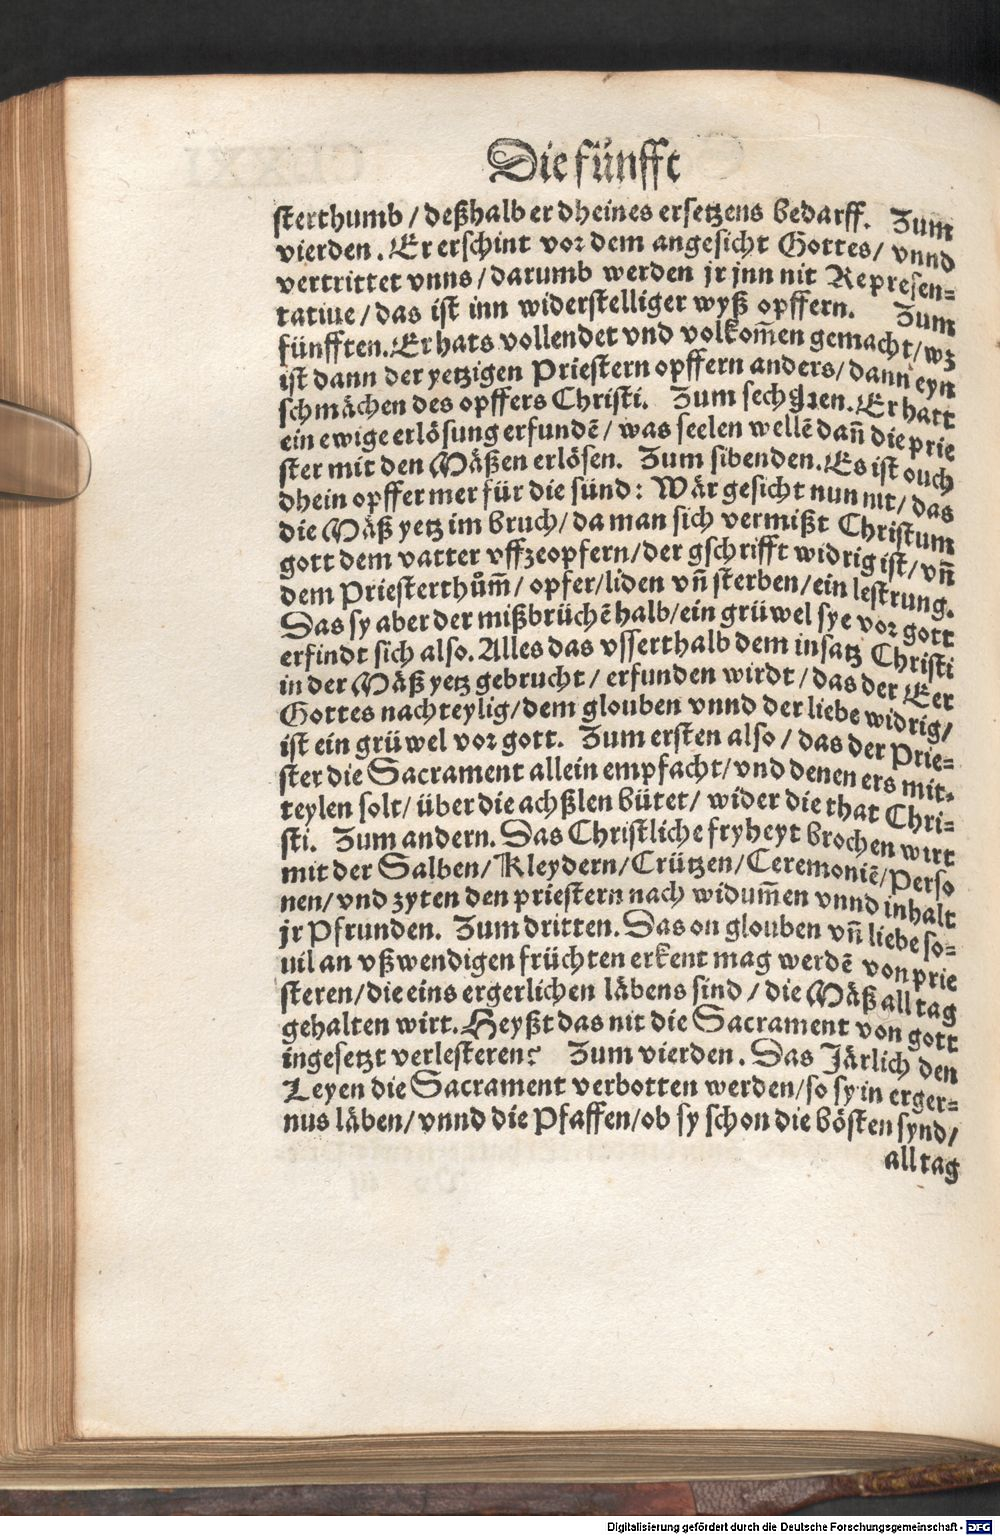 Die fünfft
sterthumb / deßhalb er dheines ersetzens bedarff. Zum
vierden. Er erschint vor dem angesicht Gottes / vnnd
vertrittet vnns / darumb werden jr jnn nit Represen-
tatiue / das ist inn widerstelliger wyß opffern. Zum
fünfften. Er hats vollendet vnd volkom̃en gemacht / wz
ist dann der yetzigen Priestern opffern anders / dann eyn
schmächen des opffers Christi. Zum sechßten. Er hatt
ein ewige erlösung erfundẽ / was seelen wellẽ dañ die prie
ster mit den Mäßen erlösen. Zum sibenden. Es ist ouch
dhein opffer mer für die sünd: Wär gesicht nun nit / das
die Mäß yetz im bruch / da man sich vermißt Christum
gott dem vatter vffzeopfern / der gschrifft widrig ist / vñ
dem Priesterthům̃ / opfer / liden vñ sterben / ein lestrung.
Das sy aber der mißbrüchẽ halb / ein grüwel sye vor gott
erfindt sich also. Alles das vsserthalb dem insatz Christi
in der Mäß yetz gebrucht / erfunden wirdt / das der Eer
Gottes nachteylig / dem glouben vnnd der liebe widrig /
ist ein grüwel vor gott. Zum ersten also / das der Prie-
ster die Sacrament allein empfacht / vnd denen ers mit-
teylen solt / über die achßlen bütet / wider die that Chri-
sti. Zum andern. Das Christliche fryheyt brochen wirt
mit der Salben / Kleydern / Crützen / Ceremoniẽ / Perso
nen / vnd zyten den priestern nach widum̃en vnnd inhalt
jr Pfrunden. Zum dritten. Das on glouben vñ liebe so-
uil an vßwendigen früchten erkent mag werdẽ von prie
steren / die eins ergerlichen läbens sind / die Mäß all tag
gehalten wirt. Heyßt das nit die Sacrament von gott
ingesetzt verlesteren? Zum vierden. Das Järlich den
Leyen die Sacrament verbotten werden / so sy in erger-
nus läben / vnnd die Pfaffen / ob sy schon die bösten synd /
all tag
Digitalisierung gefördert durch die Deutsche Forschungsgemeinschaft - DFG